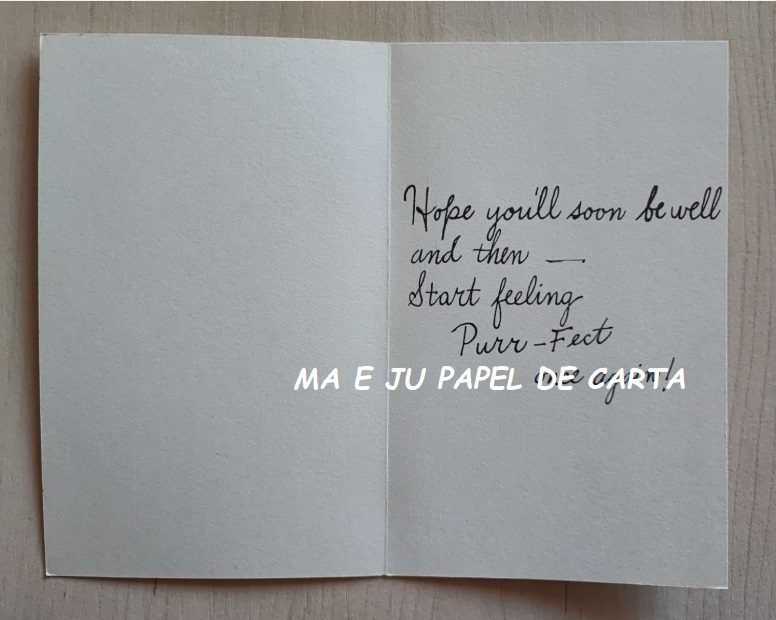 Hope you'll soon be well
and then —
Start feeling
Purr-Fect
once again!
MA E JU PAPEL DE CARTA